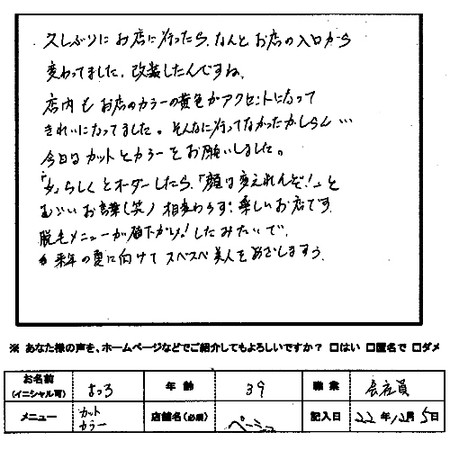 久しぶりにお店に行ったら、なんとお店の入口から
変わってました。改装したんですね。
店内もお店のカラーの黄色がアクセントになって
きれいになってました。そんなに行ってなかったかしらん…
今日はカットとカラーをお願いしました。
らしくとオーダーしたら、「顔は変えれんぞ!」と
お言葉(笑) 相変わらず、楽しいお店です。
脱毛メニューが値下がり!したみたいで、
来年の夏に向けてスベスベ美人をめざしますう。
※ あなた様の声を、ホームページなどでご紹介してもよろしいですか? □はい □匿名で □ダメ
お名前 (イニシャル可) 年齢 39 職業 会社員
メニュー カット カラー 店舗名(必須) 記入日 22年12月5日